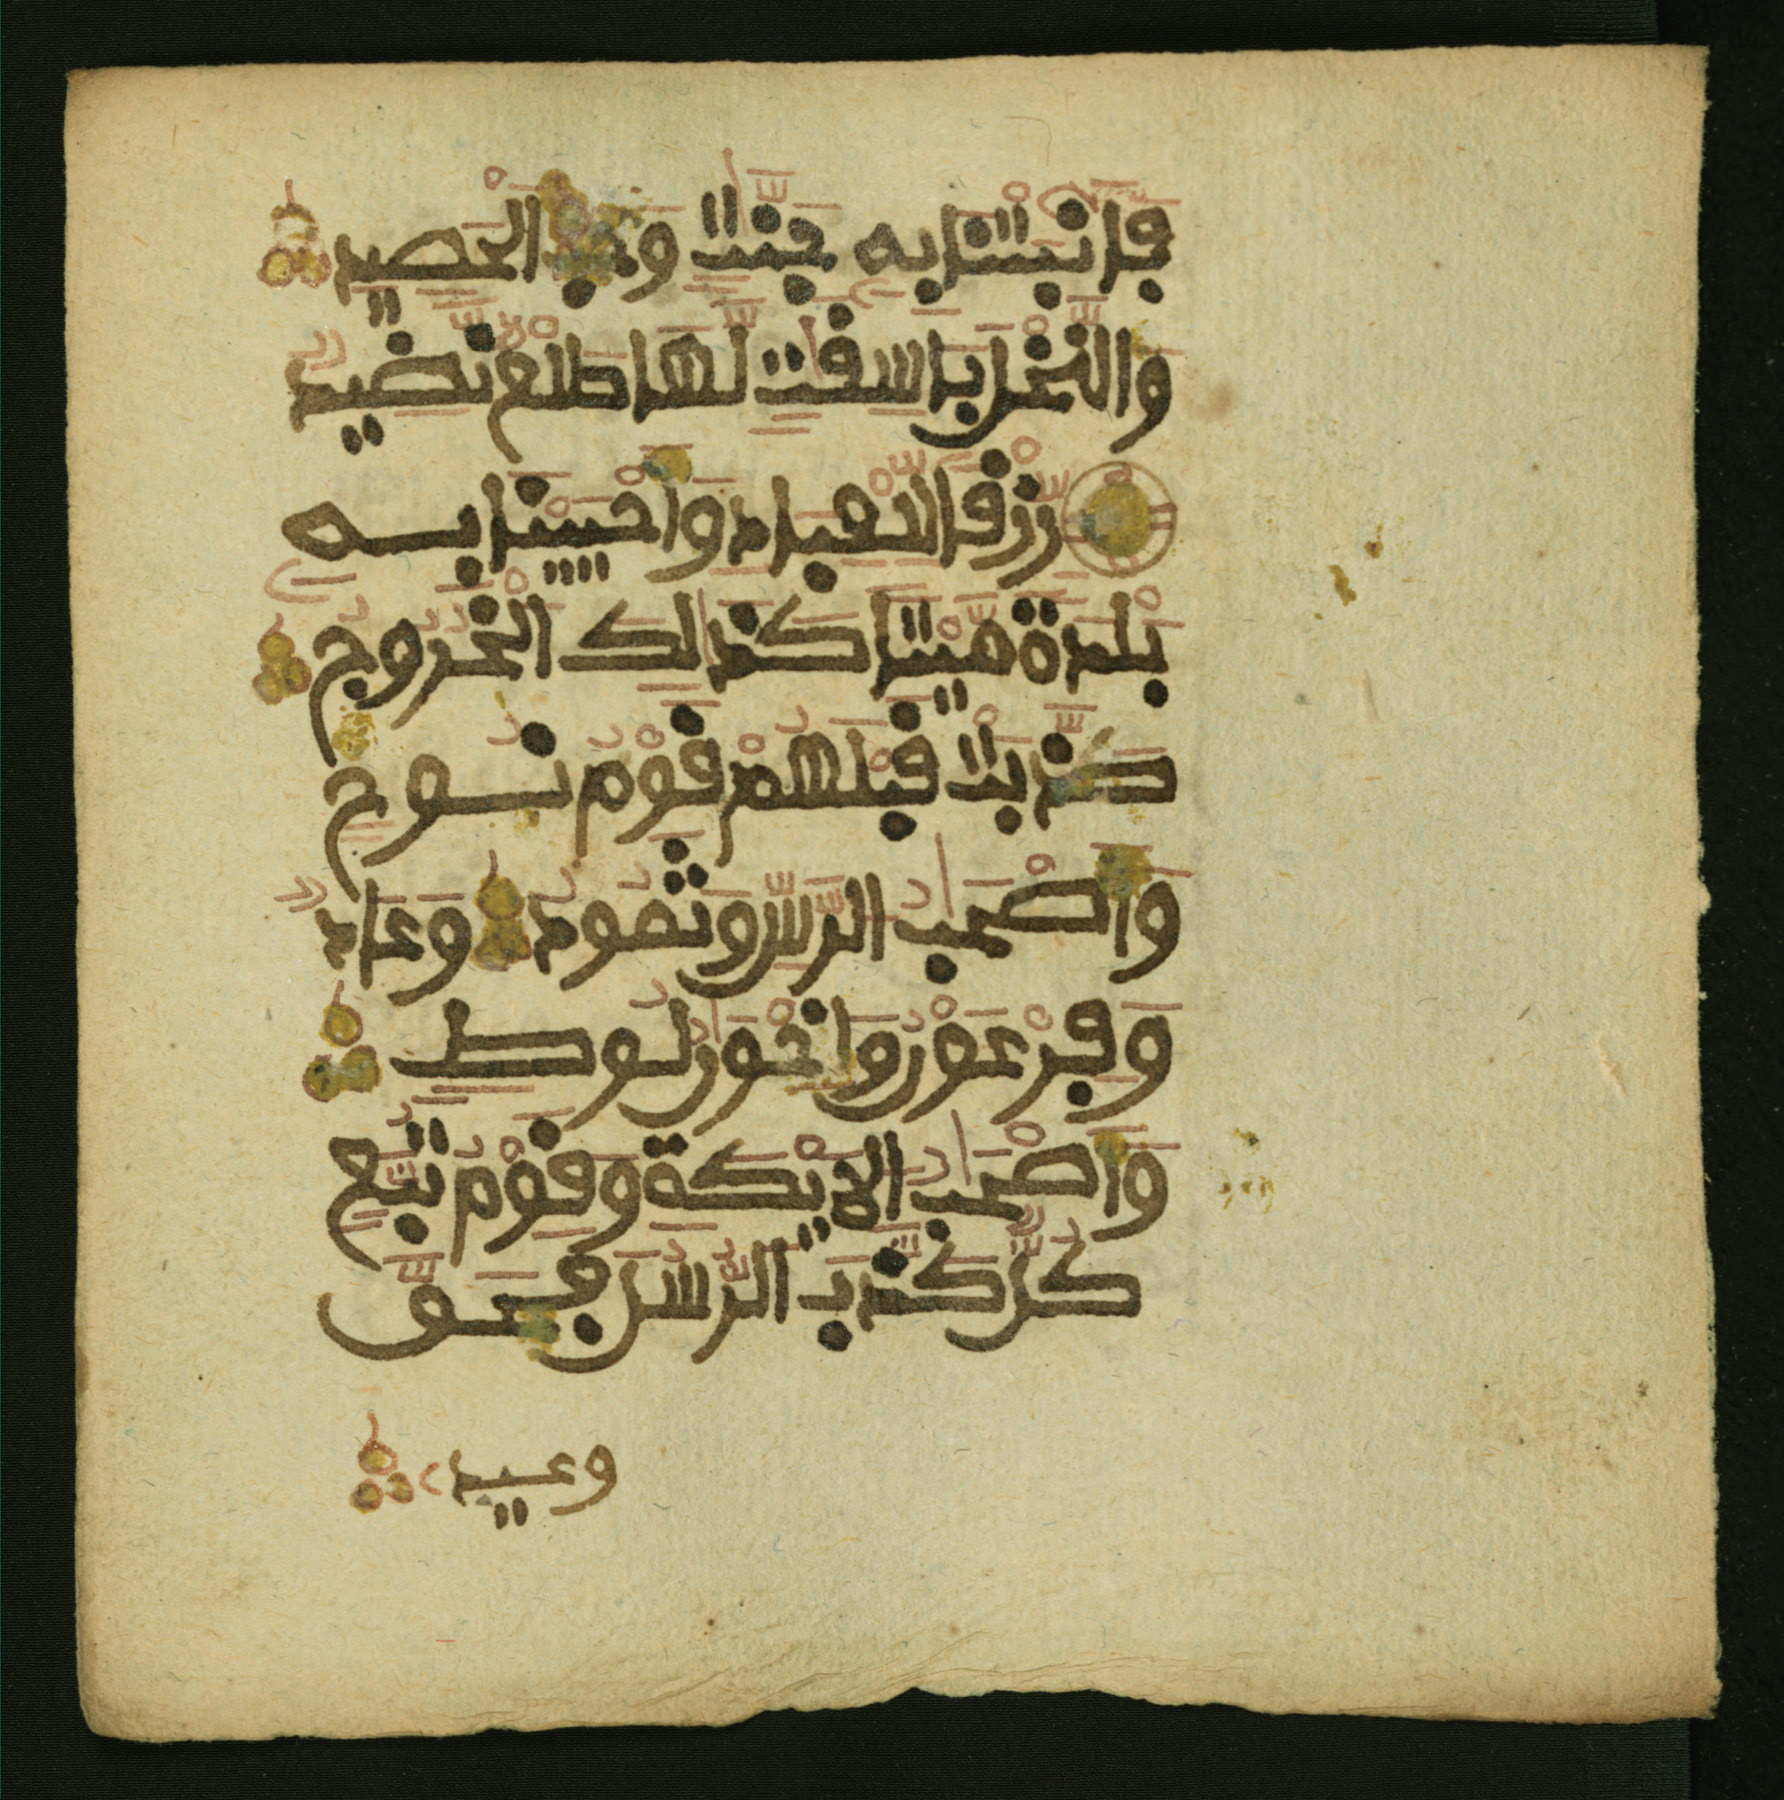 فَأَنۢبَتْنَا بِهِۦ جَنَّٰتٍ وَحَبَّ ٱلْحَصِيدِ
وَالنَّخْلَ بَاسِقَٰتٍ لَّهَا طَلْعٌ نَّضِيدٌ
رِّزْقًا لِّلْعِبَادِ وَأَحْيَيْنَا بِهِۦ
بَلْدَةً مَّيْتًا كَذَٰلِكَ الْخُرُوجُ
كَذَّبَتْ قَبْلَهُمْ قَوْمُ نُوحٍ
وَأَصْحَٰبُ الرَّسِّ وَثَمُودُ وَعَادٌ
وَفِرْعَوْنُ وَإِخْوَٰنُ لُوطٍ
وَأَصْحَٰبُ الْأَيْكَةِ وَقَوْمُ تُبَّعٍ
كُلٌّ كَذَّبَ الرُّسُلَ فَحَقَّ
وعيد